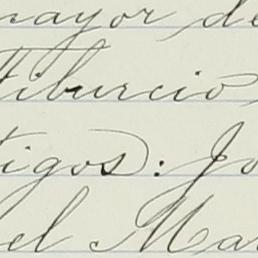 mayor de
Tiburcio
tigos): Jo
el Mar